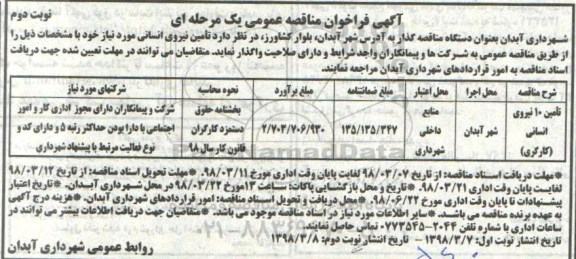 نوبت دوم
آگهی فراخوان مناقصه عمومی یک مرحله ای
شهرداری آبدان بعنوان دستگاه مناقصه گذار به آدرس شهر آبدان، بلوار کشاورز، در نظر دارد تأمین نیروی انسانی مورد نیاز خود با مشخصات ذیل را
از طریق مناقصه عمومی به شرکت ها و پیمانکاران واجد شرایط و دارای صلاحیت واگذار نماید. متقاضیان می توانند در مهلت تعیین شده جهت دریافت
اسناد مناقصه به امور قراردادهای شهرداری آبدان مراجعه نمایند.
شرح مناقصه محل اجرا محل اعتبار مبلغ ضمانتنامه مبلغ برآورد نحوه محاسبه شرکتهای مورد نیاز
تأمین ۱۰ نیروی منابع بخشنامه حقوق شرکت و پیمانکاران دارای مجوز اداری کار و امور
انسانی شهر آبدان داخلی ۱۳۵/۱۳۵/۳۴۷ ۲/۷۰۲/۷۰۶/۹۳۰ دستمزد کارگران اجتماعی با دارا بودن حداکثر رتبه ۵ و دارای کد و
(کارگری) شهرداری قانون کار سال ۹۸ نوع فعالیت مرتبط با پیشنهاد شهرداری
*مهلت دریافت اسناد مناقصه: از تاریخ ۹۸/۰۳/۰۷ لغایت پایان وقت اداری مورخ ۹۸/۰۳/۱۱. *مهلت تحویل اسناد مناقصه: از تاریخ ۹۸/۰۳/۱۲
لغایت پایان وقت اداری ۹۸/۰۳/۲۱. *تاریخ و محل بازگشایی پاکات: ساعت ۱۳ مورخ ۹۸/۰۳/۲۲ در محل شهرداری آبدان. *تاریخ اعتبار
پیشنهادات تا پایان وقت اداری مورخ ۹۸/۰۶/۲۲. *محل دریافت و تحویل اسناد مناقصه: امور قراردادهای شهرداری آبدان. *هزینه درج آگهی
به عهده برنده مناقصه می باشد. *سایر اطلاعات مورد نیاز در اسناد مناقصه موجود می باشد. *متقاضیان جهت دریافت اطلاعات بیشتر می توانند در
ساعات اداری با شماره تلفن ۲۰۴۴-۰۷۷۳۵۴۵ تماس حاصل نمایند.
تاریخ انتشار نوبت اول: ۱۳۹۸/۳/۷ - تاریخ انتشار نوبت دوم: ۱۳۹۸/۳/۸
روابط عمومی شهرداری آبدان